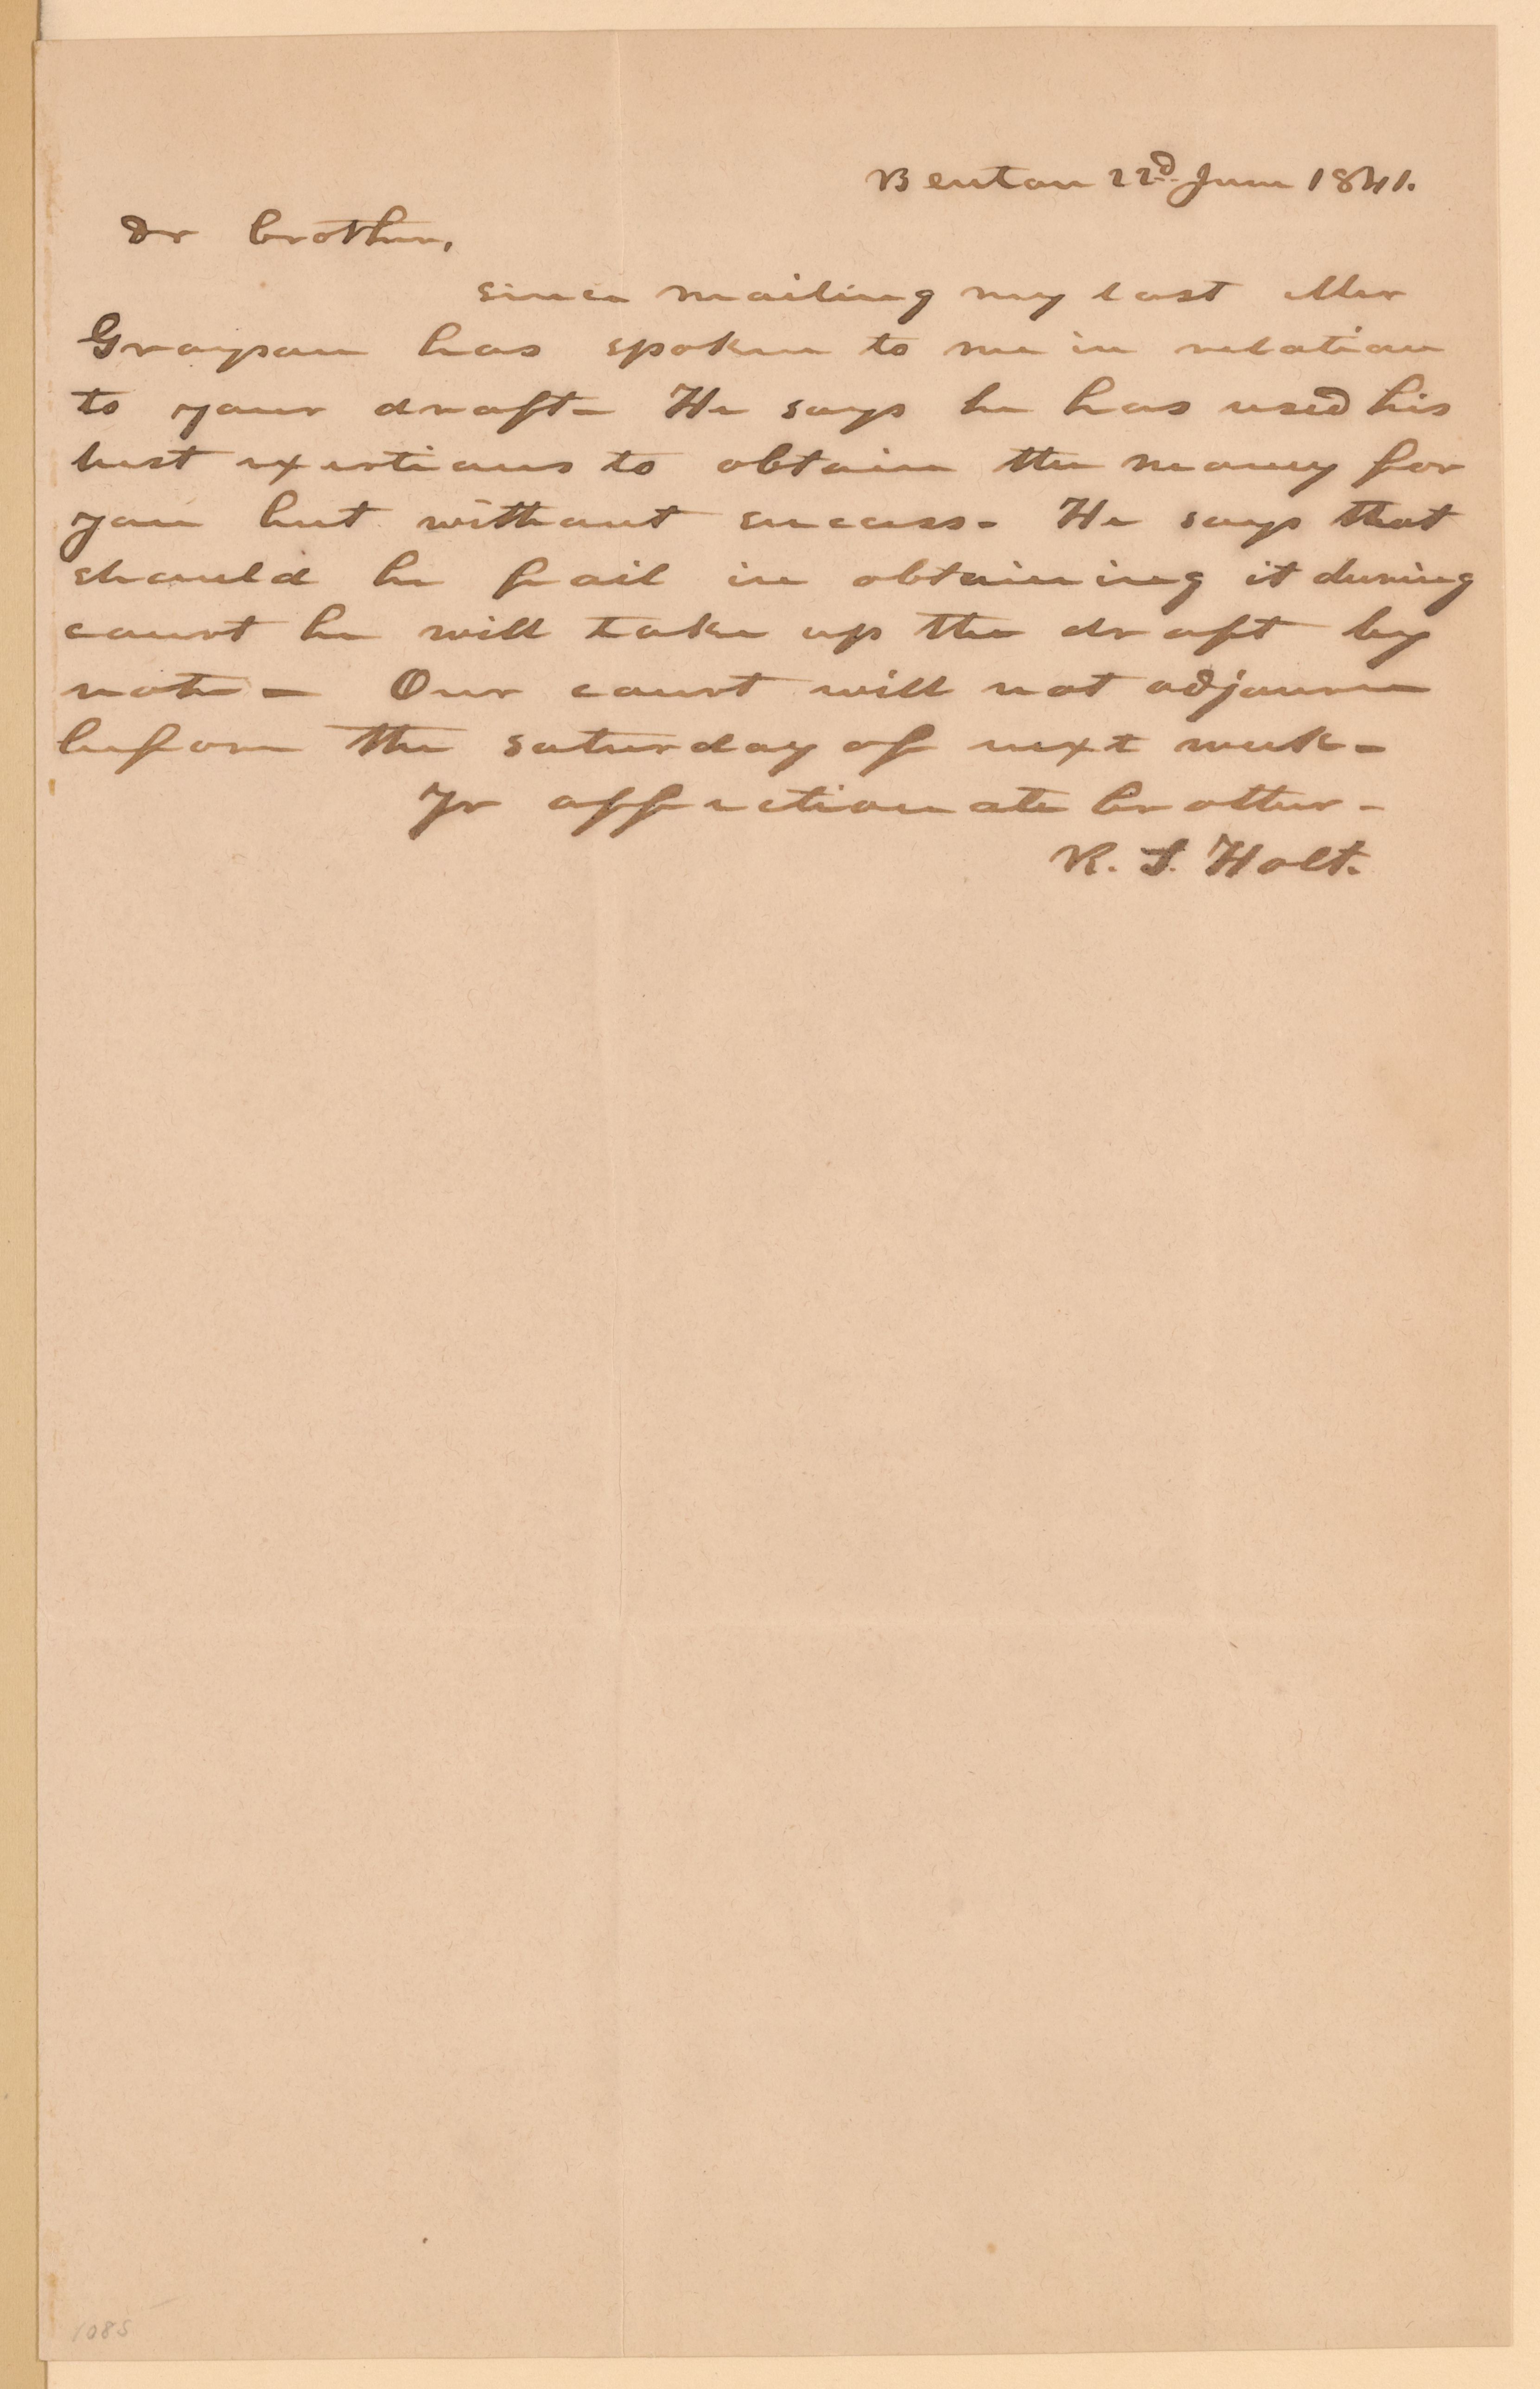 Benton 22d June 1841.
Dr brother,
since mailing my last Mr
Grayson has spoken to me in relation
to your draft - He says he has used his
best exertions to obtain the money for
you but without success - He says that
should he fail in obtaining it during
court he will take up the draft by
note - Our court will not adjourn
before the saturday of next week -
Yr affectionate brother -
R. S. Holt.
1085